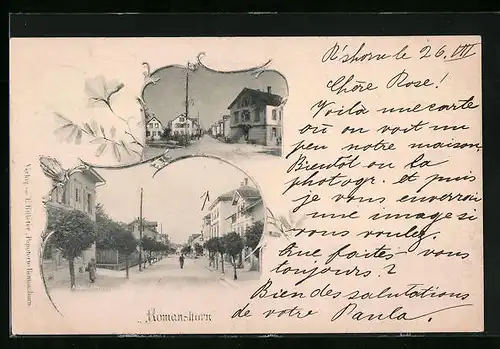 R'shorn le 26. VIII
Chère Rose!
Voilà une carte
où on voit un
peu notre maison.
Bientot on la
photogr. et puis
je vous enverrai
une image si
vous voulez.
Que faites-vous
toujours?
Bien des salutations
de votre Paula.
Romanshorn
Verlag von E. Hüttner, Papeterie Romanshorn.